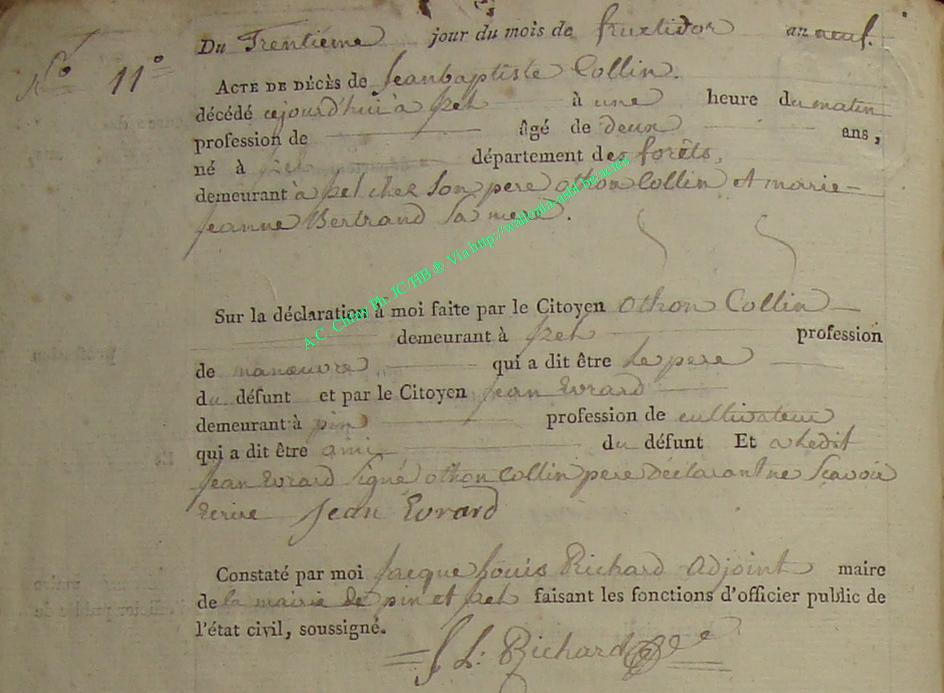 Du Trentieme jour du mois de fructidor an neuf.
No 11°
ACTE DE DÉCÈS de Jeanbaptiste Collin.
décédé cejourd'hui à izel à une heure du matin
profession de âgé de deux ans,
né à izel département des forêts,
demeurant à izel chez Son pere othon Collin et marie
jeanne Bertrand Sa mere.
Sur la déclaration à moi faite par le Citoyen Othon Collin
demeurant à izel profession
de manœuvre qui a dit être Le pere
du défunt et par le Citoyen jean Evrard
demeurant à pin profession de cultivateur
qui a dit être ami du défunt Et a Ledit
jean Evrard Signé othon Collin pere Déclarant ne Scavoir
Ecrire Jean Evrard
Constaté par moi jacque Louis Richard Adjoint maire
de la mairie de pin et izel faisant les fonctions d'officier public de
l'état civil, soussigné.
J L: Richard
A.C. Chiny Ph. IC/HB ® Via http://